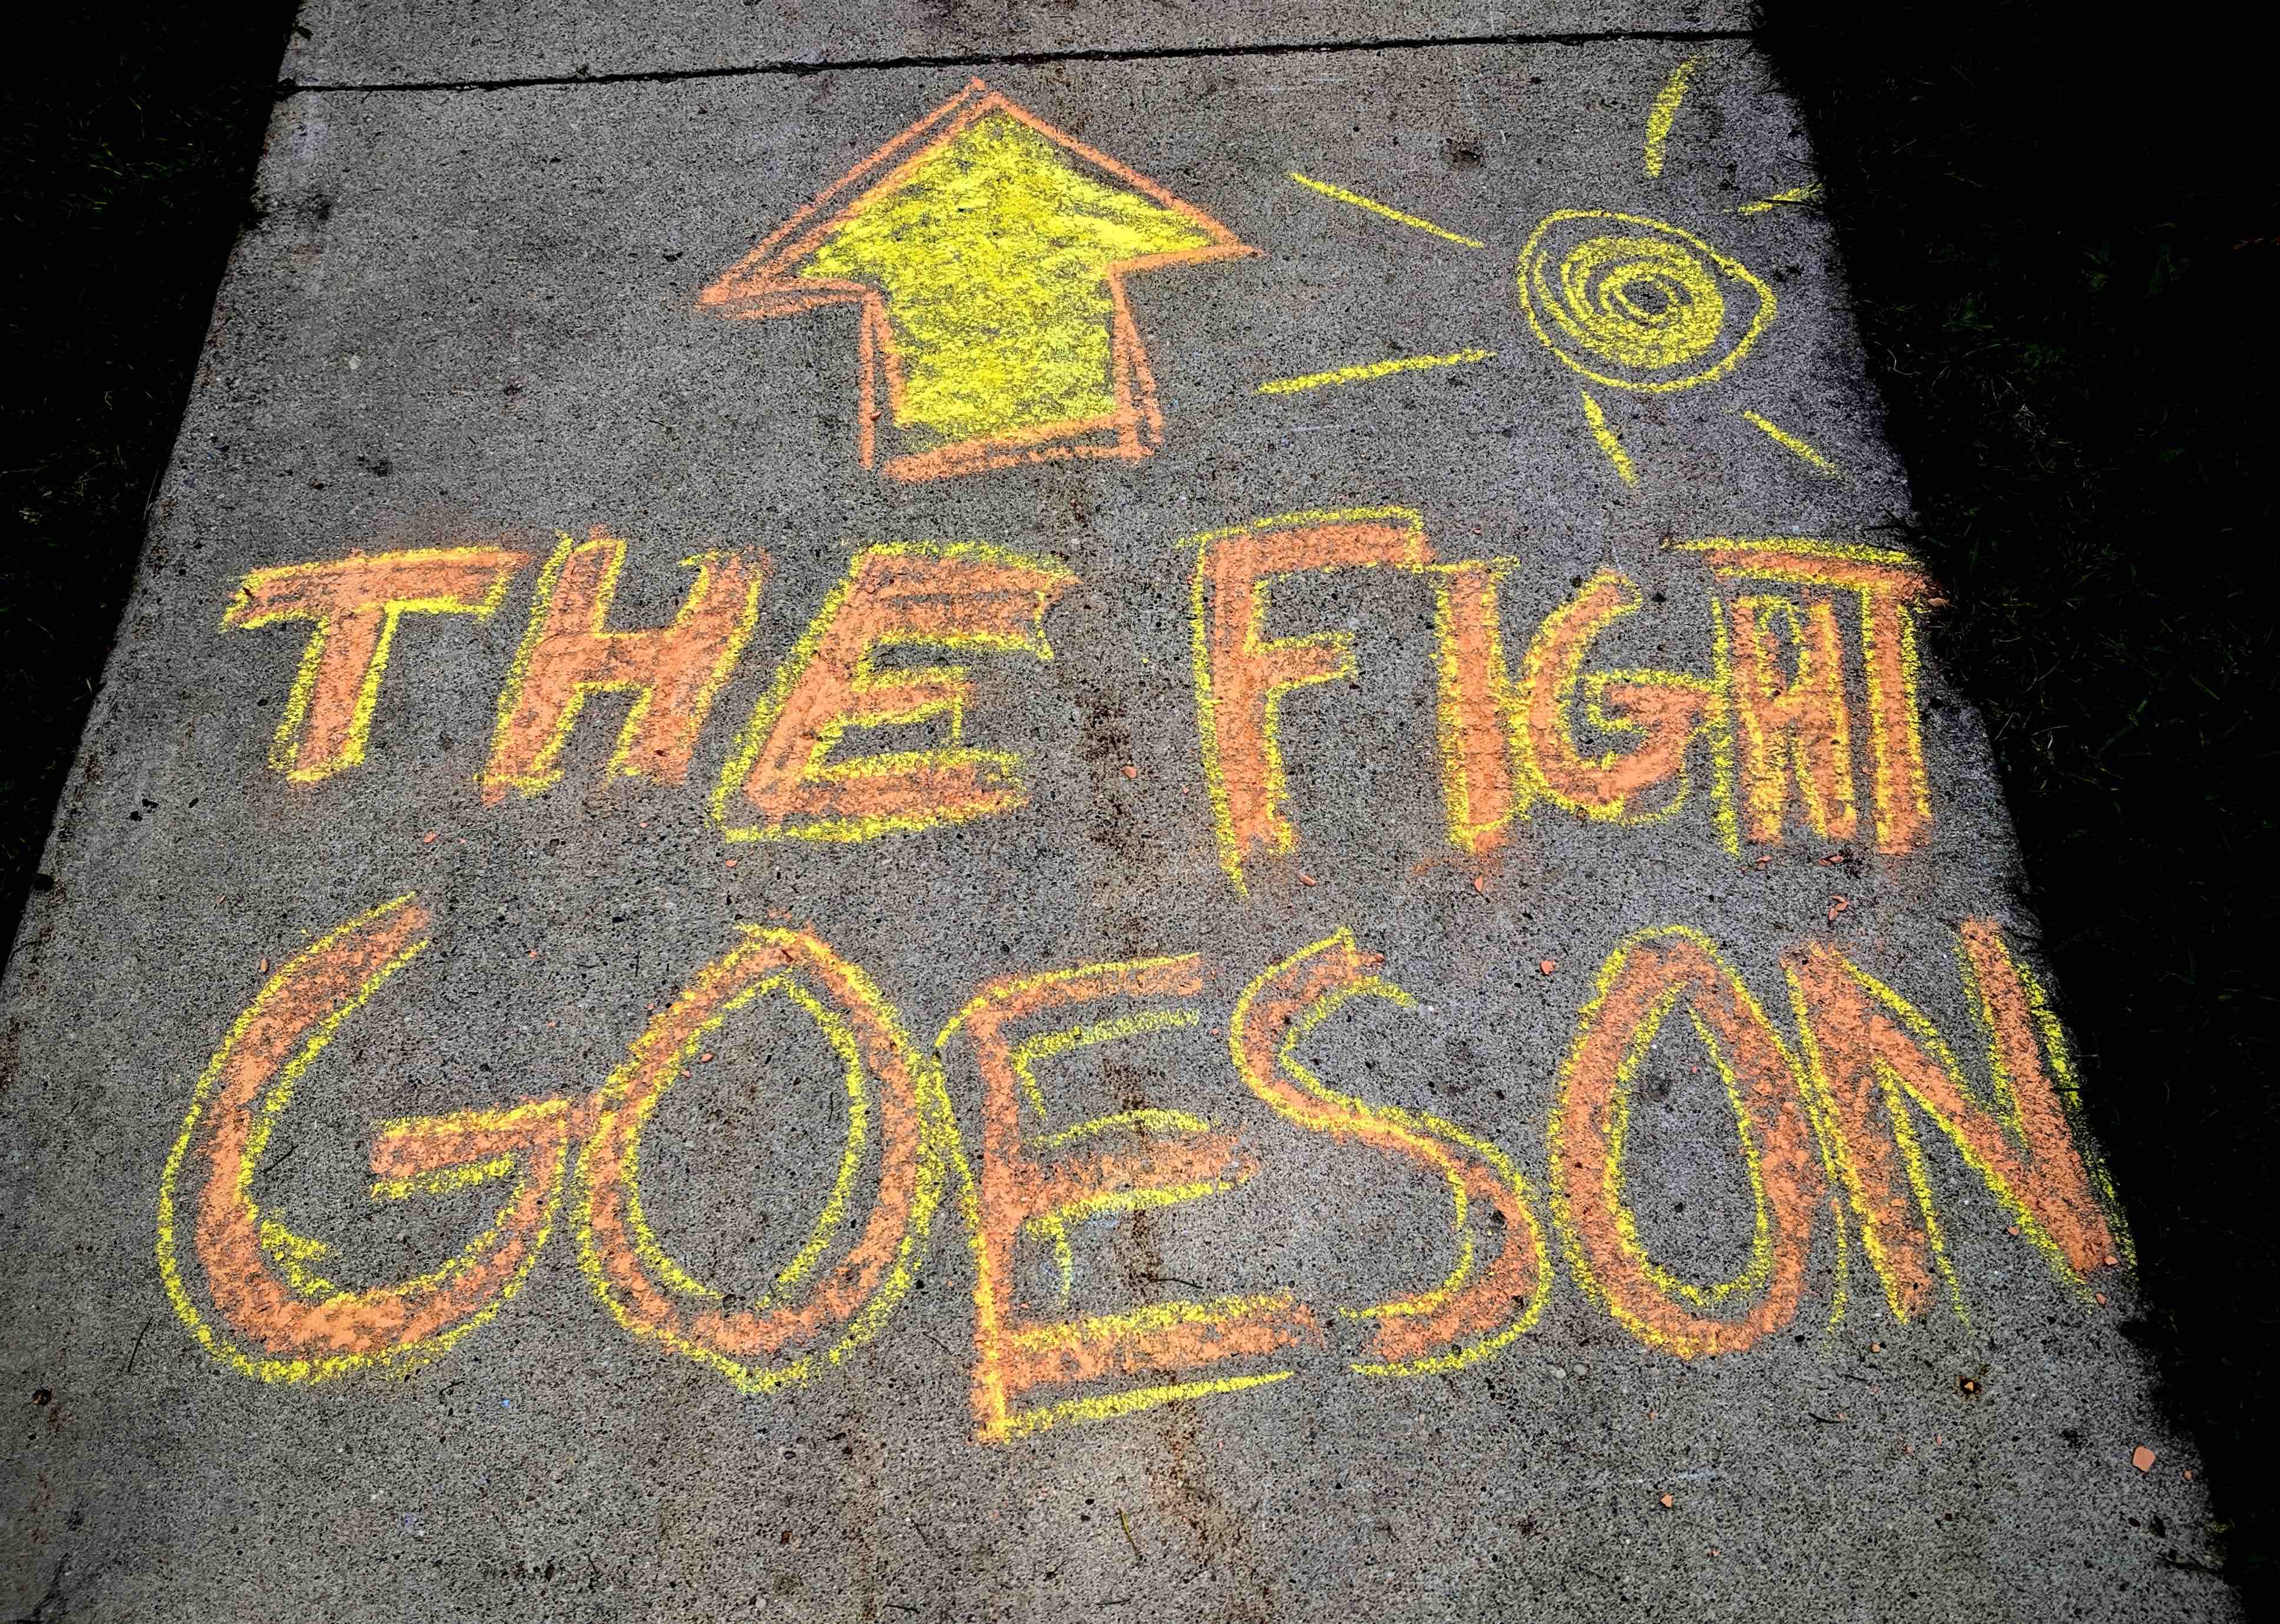 THE FIGHT
GOES ON